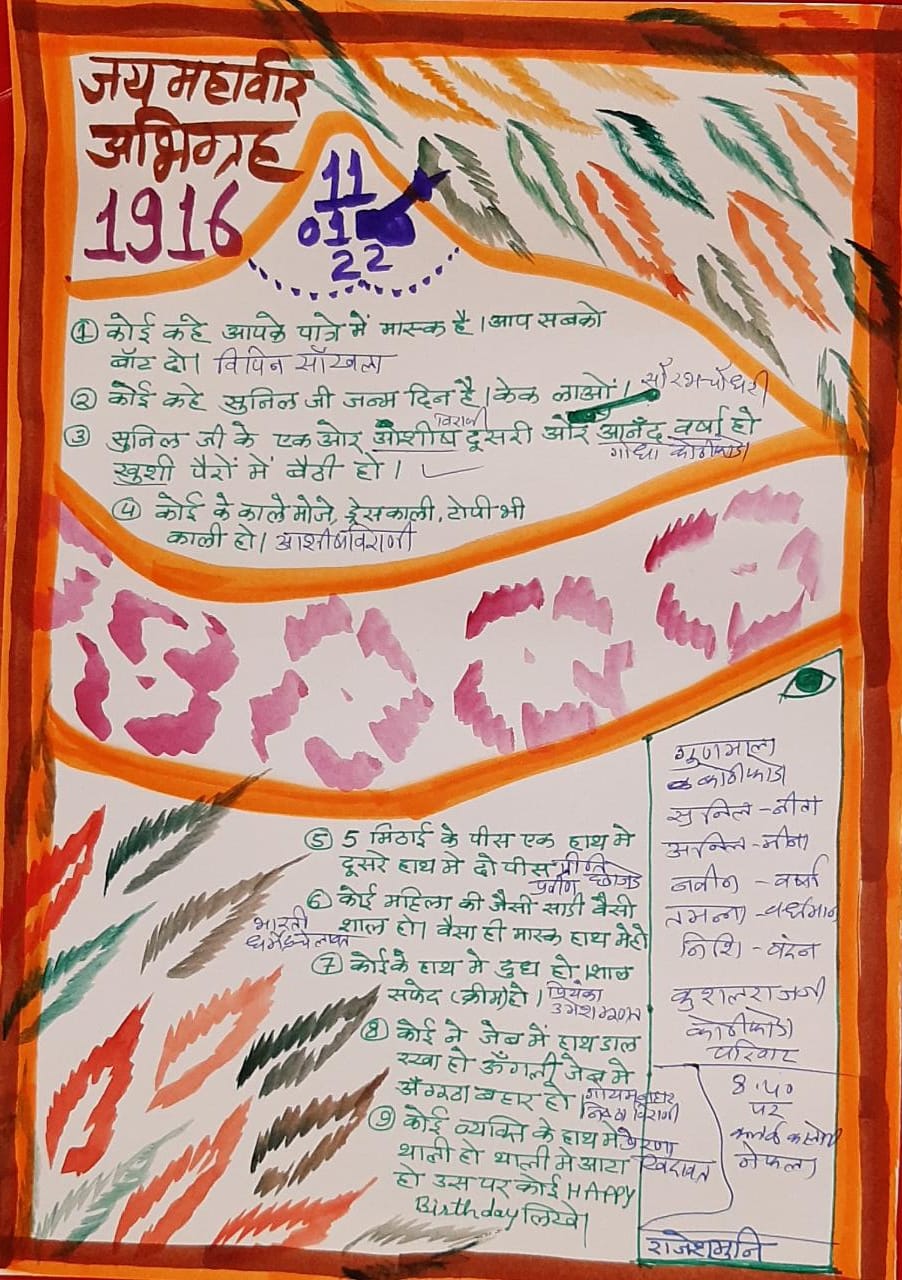 जय महावीर
अभिग्रह
1916
11
01
22
① कोई कहे आपके पात्रे में मास्क है। आप सबको
बॉट दो। विपिन सॉखला
② कोई कहे सुनिल जी जन्म दिन है। केक लाओं। सौरभ चौधरी
③ सुनिल जी के एक ओर ओशीष विरानी दूसरी ओर आनंद वर्षा हो
गोधा कोठीफोडा
खुशी पैरों में बैठी हो।
④ कोई के काले मोजे, ड्रेस काली, टोपी भी
काली हो। आशीष विरानी
⑤ 5 मिठाई के पीस एक हाथ मे
दूसरे हाथ मे दो पीस प्रीति
प्रवीण छाजेड
⑥ कोई महिला की जैसी साडी वैसी
शाल हो। वैसा ही मास्क हाथ मेहो
भारती
⑦ कोई के हाथ मे दुध हो। शाल
सफेद (क्रीम) हो। प्रियंका
⑧ कोई ने जेब में हाथ डाल
रखा हो ऊँगली जेब मे
अँगुठा बहार हो।
विरानी
⑨ कोई व्यक्ति के हाथ मे प्रेरणा
थाली हो थाली मे आटा
हो उस पर कोई HAPPY
Birthday लिखे।
गुणमाला
कोठीफोडा
सुनिल - नीता
अनिल - मीना
नवीन - वर्षा
तमन्ना - वर्धमान
निशि - चंदन
कुशलराजजी
कोठीफोडा
परिवार
8.50
पर
राजेशमुनि